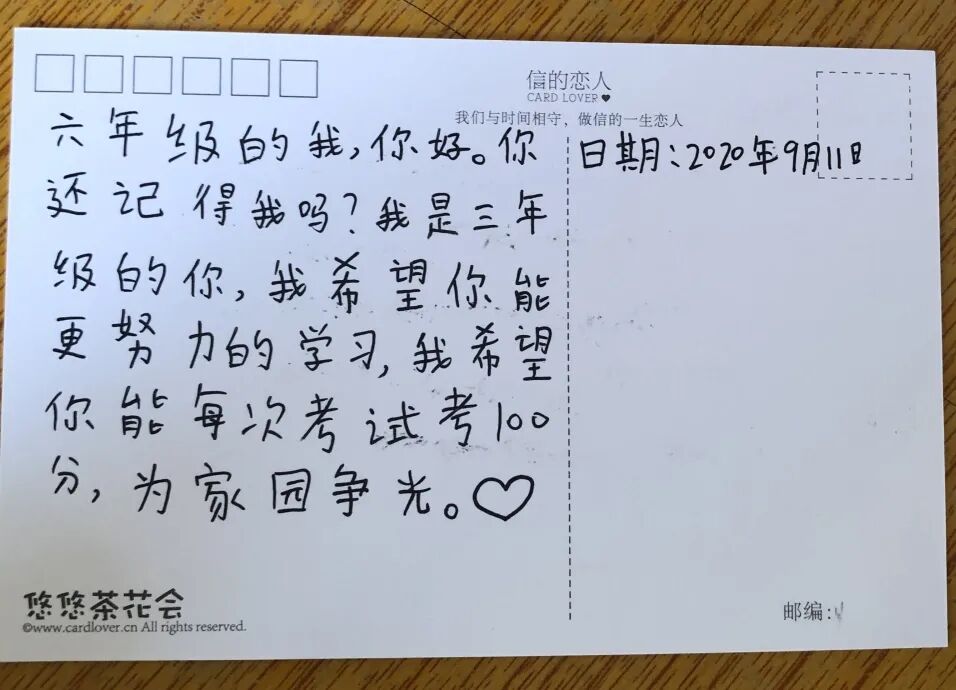 信的恋人
CARD LOVER♥
我们与时间相守，做信的一生恋人
六年级的我，你好。你
还记得我吗？我是三年
级的你，我希望你能
更努力的学习，我希望
你能每次考试考100
分，为家园争光。♡
日期：2020年9月11日
悠悠茶花会
©www.cardlover.cn All rights reserved.
邮编：